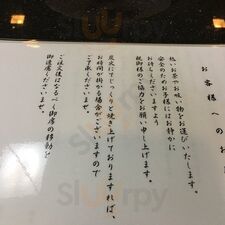 お客様へのお
熱いお茶やお吸い物をお運びいたします。
安全のためお子様にはお静かに
お待ちくださいますよう
親御様のご協力をお願い申し上げます。
炭火にてじっくりと焼き上げておりますれば、
お時間が掛かる場合がございますので
ご了承くださいませ。
ご注文後はなるべく御席の移動を
御遠慮くださいませ。